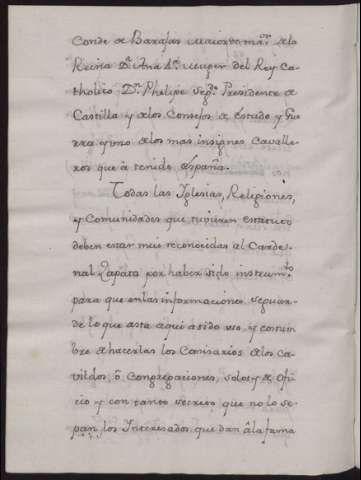 Conde de Barajas Maiordomo mar. de la
Reina Dª Ana 4ª muger del Rey Ca-
tholico Dn. Phelipe segdo. Presidente de
Castilla y delos Consejos de Estado y Gue
rra y uno delos mas insignes Cavalle-
ros que à tenido España.
Todas las Iglesias, Religiones,
y Comunidades que tuvieren estatuto
deben estar mui reconocidas al Carde-
nal Zapata por haber sido instrumto.
para que enlas informaciones se guar-
de lo que asta aqui á sido uso y costum
bre de hacerlas los Comisarios delos Ca-
vildos, ô Congregaciones, solos y de ofi-
cio y con tanto secreto que no lo se-
pan los Interesados que dan âla fama